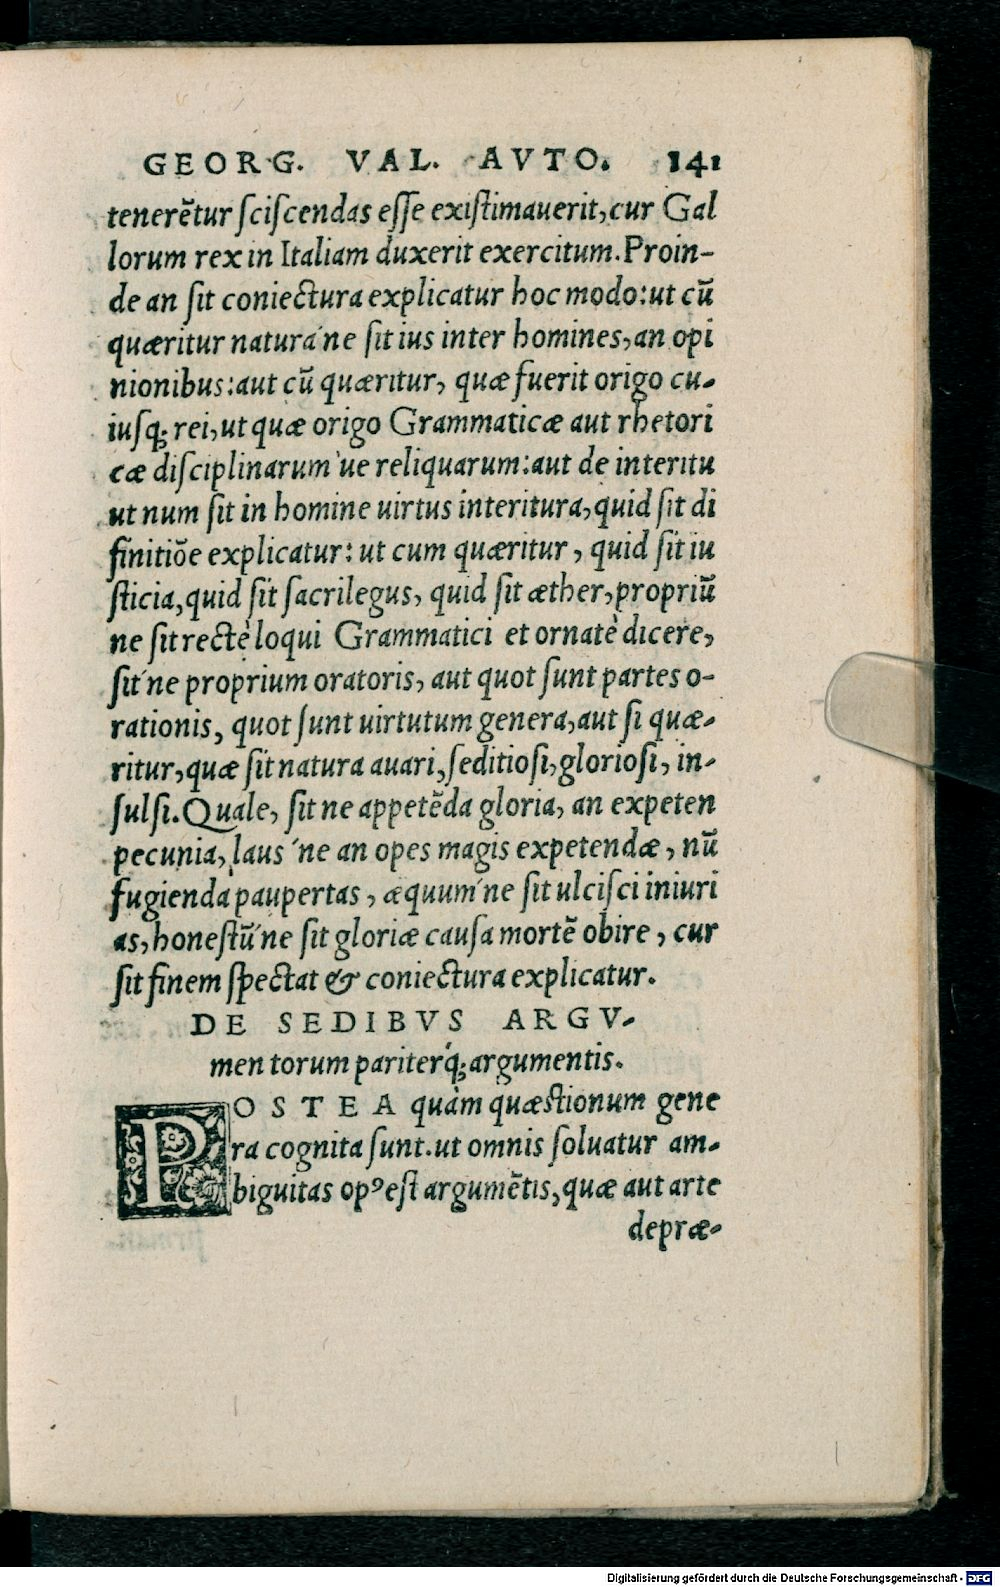 GEORG. VAL. AVTO. 141
tenerẽtur ſciſcendas eſſe exiſtimauerit, cur Gal
lorum rex in Italiam duxerit exercitum. Proin-
de an ſit coniectura explicatur hoc modo: ut cũ
quæritur natura ́ne ſit ius inter homines, an opi
nionibus: aut cũ quæritur, quæ fuerit origo cu-
iuſq; rei, ut quæ origo Grammaticæ aut rhetori
cæ diſciplinarum ́ue reliquarum: aut de interitu
ut num ſit in homine uirtus interitura, quid ſit di
finitiõe explicatur: ut cum quæritur, quid ſit iu
ſticia, quid ſit ſacrilegus, quid ſit æther, propriũ
ne ſit rectè loqui Grammatici et ornatè dicere,
ſit ́ne proprium oratoris, aut quot ſunt partes o-
rationis, quot ſunt uirtutum genera, aut ſi quæ-
ritur, quæ ſit natura auari, ſeditioſi, glorioſi, in-
ſulſi. Quale, ſit ne appetẽda gloria, an expeten
pecunia, laus ́ne an opes magis expetendæ, nũ
fugienda paupertas, æquum ́ne ſit ulciſci iniuri
as, honeſtũ ́ne ſit gloriæ cauſa mortẽ obire, cur
ſit finem ſpectat & coniectura explicatur.
DE SEDIBVS ARGV-
mentorum pariterq́; argumentis.
POSTEA quàm quæſtionum gene
ra cognita ſunt. ut omnis ſoluatur am-
biguitas opꝰ eſt argumẽtis, quæ aut arte
depræ-
Digitalisierung gefördert durch die Deutsche Forschungsgemeinschaft - DFG